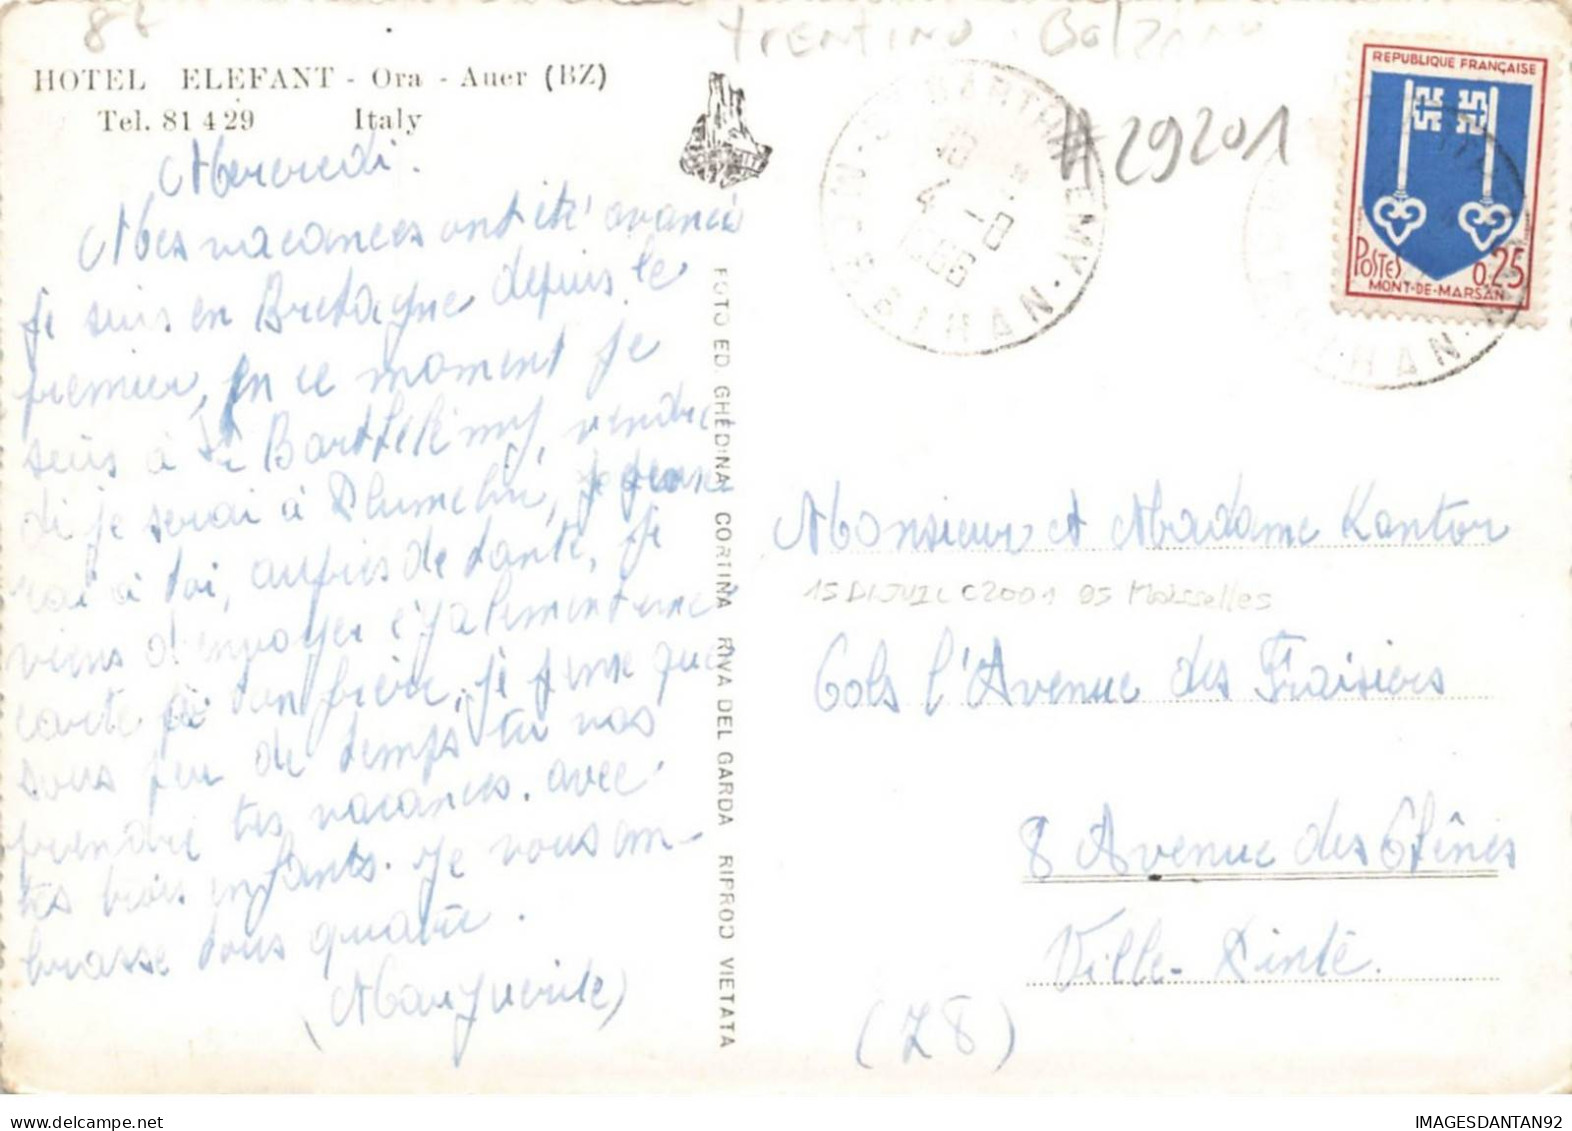 87
Trentino. Bolzano
HOTEL ELEFANT - Ora - Auer (BZ)
Tel. 81 4 29 Italy
#29201
ST BARTHELEMY
18
4 -8
1966
MORBIHAN
REPUBLIQUE FRANÇAISE
POSTES 0,25
MONT-DE-MARSAN
Mercredi.
Mes vacances ont été avancé
je suis en Bretagne depuis le
premier, en ce moment je
suis à St Barthélémy, vendre
di je serai à Plumelin, je pense
rai à toi, auprès de tante, je
viens d'envoyer également une
carte à ton frère, je pense que
sous peu de temps tu vas
prendre tes vacances. avec
tes trois enfants. Je vous em-
brasse tous quatre.
(Marguerite)
FOTO ED. GHEDINA CORTINA RIVA DEL GARDA RIPROD VIETATA
Monsieur et Madame Kantor
15 DIJUIL C2001 95 Moisselles
Cols l'Avenue des Fraisiers
8 Avenue des Chênes
Ville-
(78)
IMAGESDANTAN92